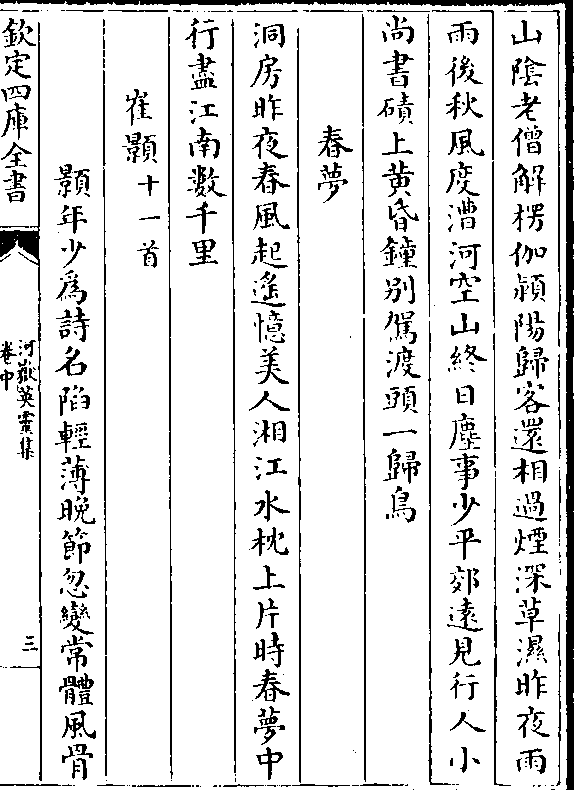 山陰老僧解楞伽潁陽歸客還相過煙深草濕昨夜雨
雨後秋風度漕河空山終日塵事少平郊逺見行人小
尚書磧上黄昏鐘别駕渡頭一歸鳥
春夢
洞房昨夜春風起遥憶美人湘江水枕上片時春夢中
行盡江南數千里
崔顥十一首
顥年少為詩名陷輕薄晚節忽變常體風骨
欽定四庫全書
河嶽英靈集
卷中
三